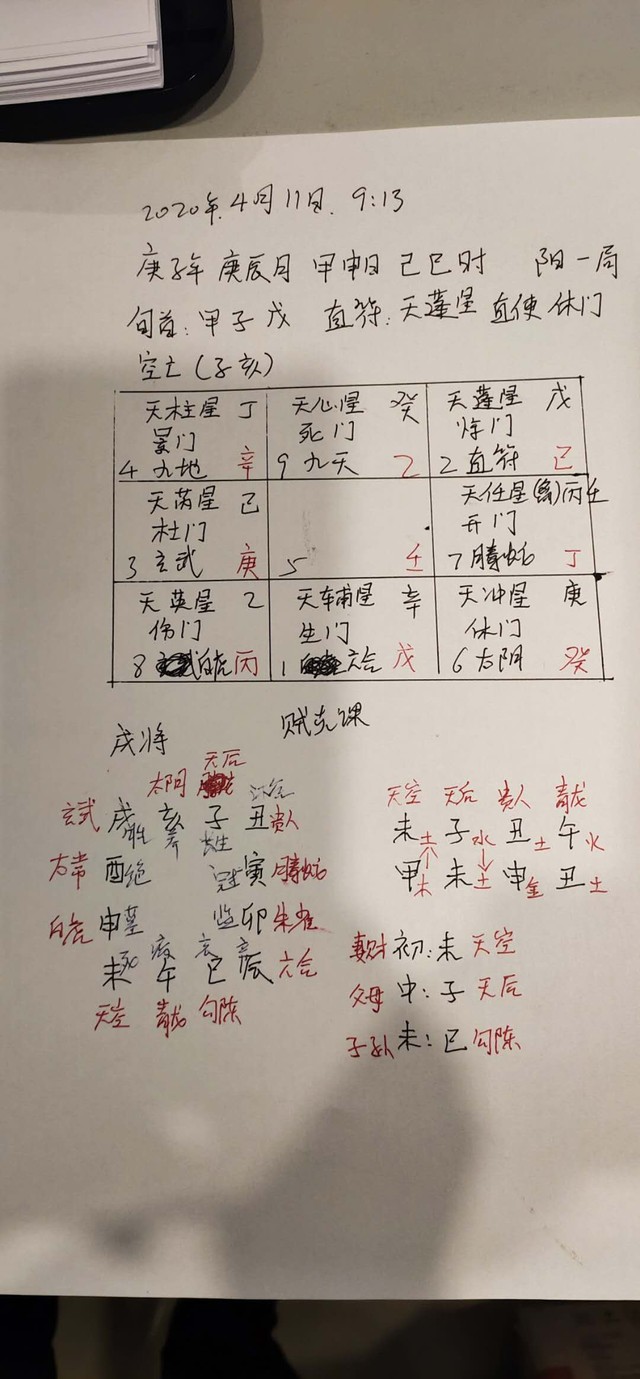 2020年.4月11日. 9:13
庚子年 庚辰月 甲申日 己巳时 阳一局
旬首:甲子戊 直符:天蓬星 直使休门
空亡(子亥)
天柱星 丁 天心星 癸 天蓬星 戊
景门 死门
4 九地 辛 9 九天 乙 2 直符 己
天芮星 己 天任星(禽)丙壬
杜门 开门
3 玄武 庚 5 壬 7 腾蛇 丁
天英星 乙 天辅星 辛 天冲星 庚
伤门 生门 休门
8 白虎 丙 1 六合 戊 6 太阴 癸
戌将 贼克课
太阴 天后
玄武 戌胎 亥养 子长生 丑 贵人
太常 酉绝 寅 腾蛇
白虎 申墓 卯 朱雀
未死 午病 巳衰 辰 六合
天空 青龙 勾陈
天空 天后 贵人 青龙
未土 子水 丑土 午火
甲木 未土 申金 丑土
妻财 初:未 天空
父母 中:子 天后
子孙 末:巳 勾陈